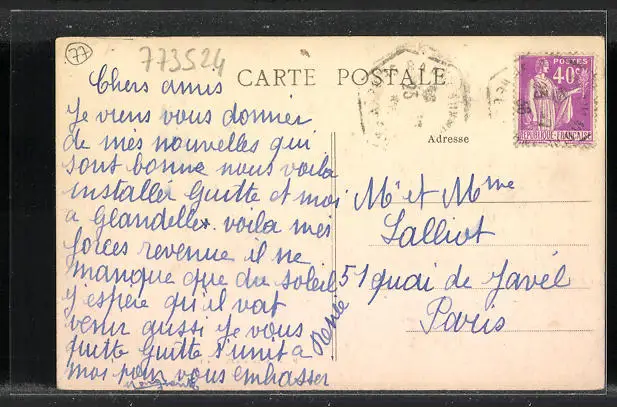 77
773524
CARTE POSTALE
POSTES
40c
REPUBLIQUE-FRANÇAISE
Adresse
Chers amis
Je viens vous donner
de mes nouvelles qui
sont bonne nous voila
installer Guitte et moi
a Glandelles. voila mes
forces revenue il ne
manque que du soleil
j'espere qu'il vat
venir aussi Je vous
quitte Guitte s'unit a
moi pour vous embrasser
Renée
Marguerite
Mr et Mme
Lalliot
51 quai de Javel
Paris